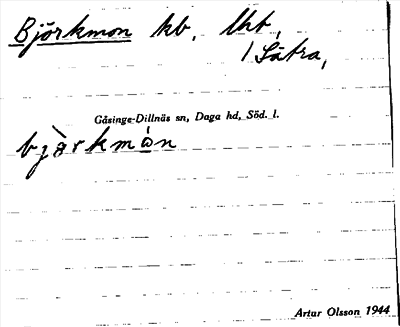 Björkmon kb, lht,
1 Sätra,
Gåsinge-Dillnäs sn, Daga hd, Söd. l.
bjə̀rkmón
Artur Olsson 1944